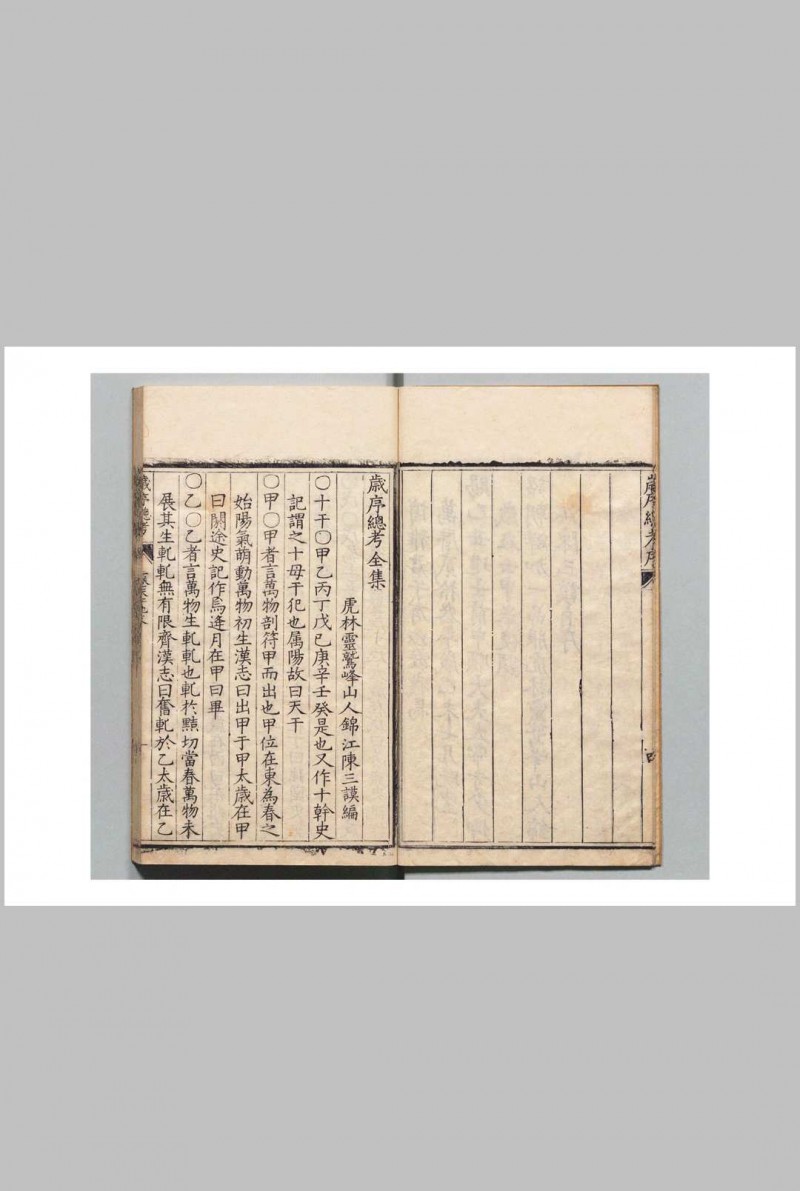 歲序總考序
四
歲序總考全集
虎林靈鷲峰山人錦江陳三謨編
〇十干〇甲乙丙丁戊己庚辛壬癸是也又作十幹史
記謂之十母干犯也属陽故曰天干
〇甲〇甲者言萬物剖符甲而出也甲位在東為春之
始陽氣萌動萬物初生漢志曰出甲于甲太歲在甲
曰閼逢史記作焉逢月在甲曰畢
〇乙〇乙者言萬物生軋軋也軋於黠切當春萬物未
展其生軋軋無有限齊漢志曰奮軋於乙太歲在乙
歲序總考